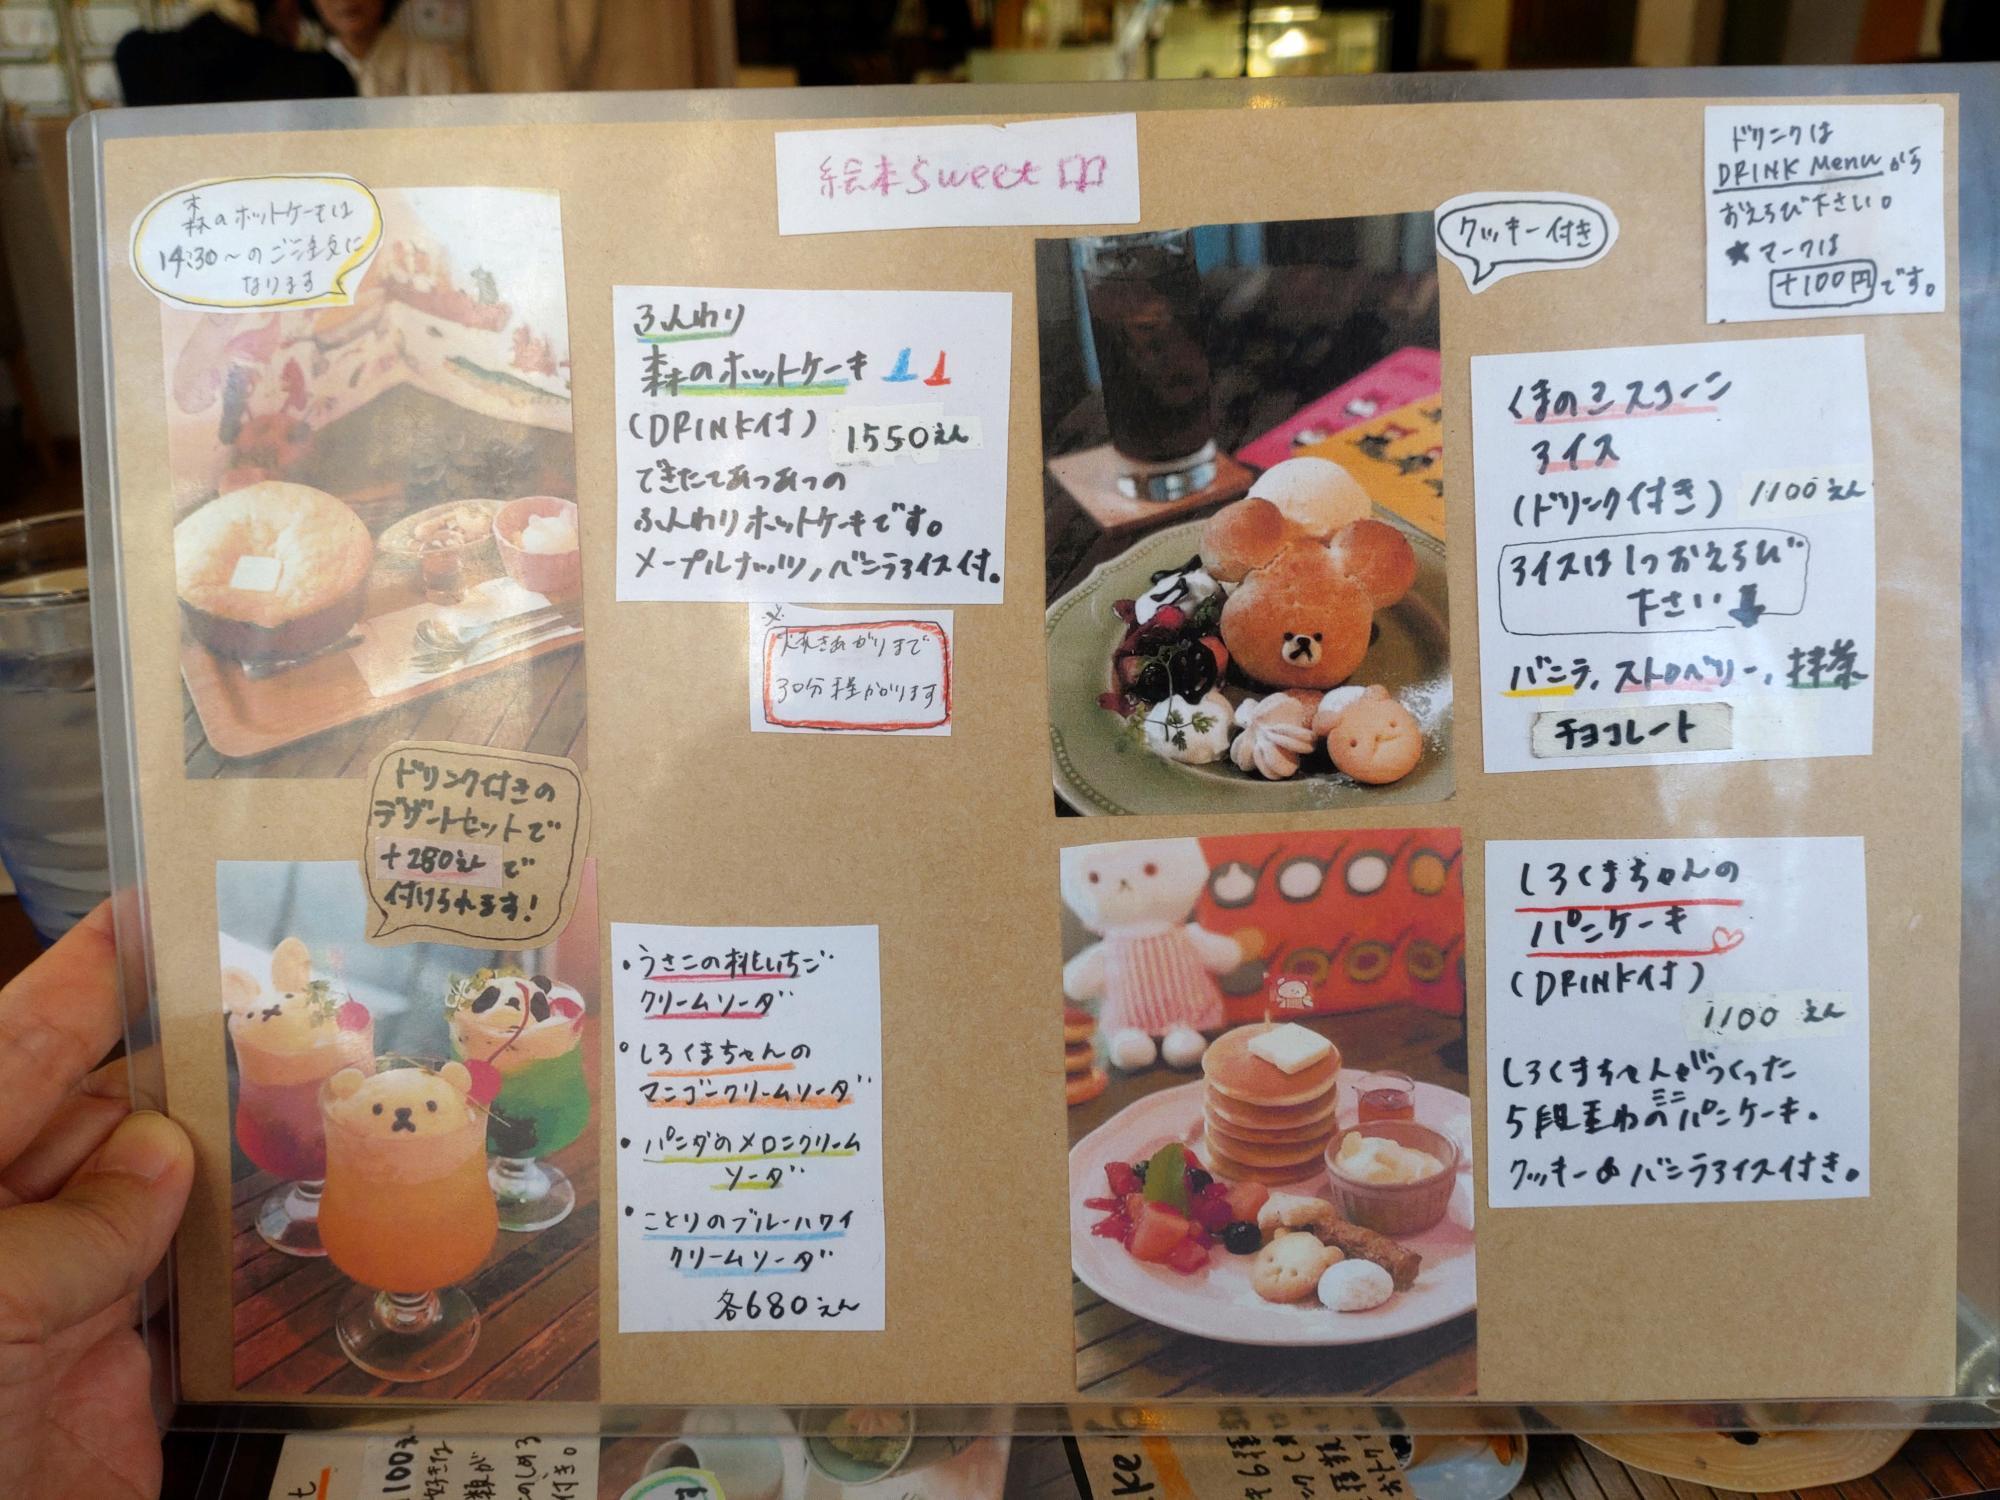 絵本Sweet
森のホットケーキは
14:30〜のご注文に
なります
ふんわり
森のホットケーキ
(DRINK付) 1550えん
できたてあつあつの
ふんわりホットケーキです。
メープルナッツ, バニラアイス付。
※
焼きあがりまで
30分程かかります
ドリンク付きの
デザートセットで
+280えんで
付けられます!
・うさこの桃いちご
クリームソーダ
・しろくまちゃんの
マンゴークリームソーダ
・パンダのメロンクリーム
ソーダ
・ことりのブルーハワイ
クリームソーダ
各680えん
クッキー付き
ドリンクは
DRINK Menuから
おえらび下さい。
★マークは
+100円です。
くまのミスコーン
アイス
(ドリンク付き) 1100えん
アイスは1つおえらび
下さい
バニラ, ストロベリー, 抹茶
チョコレート
しろくまちゃんの
パンケーキ
(DRINK付)
1100 えん
しろくまちゃんがつくった
5段重ねのミニパンケーキ.
クッキーやバニラアイス付き。
100え
好きな
付き。
ke